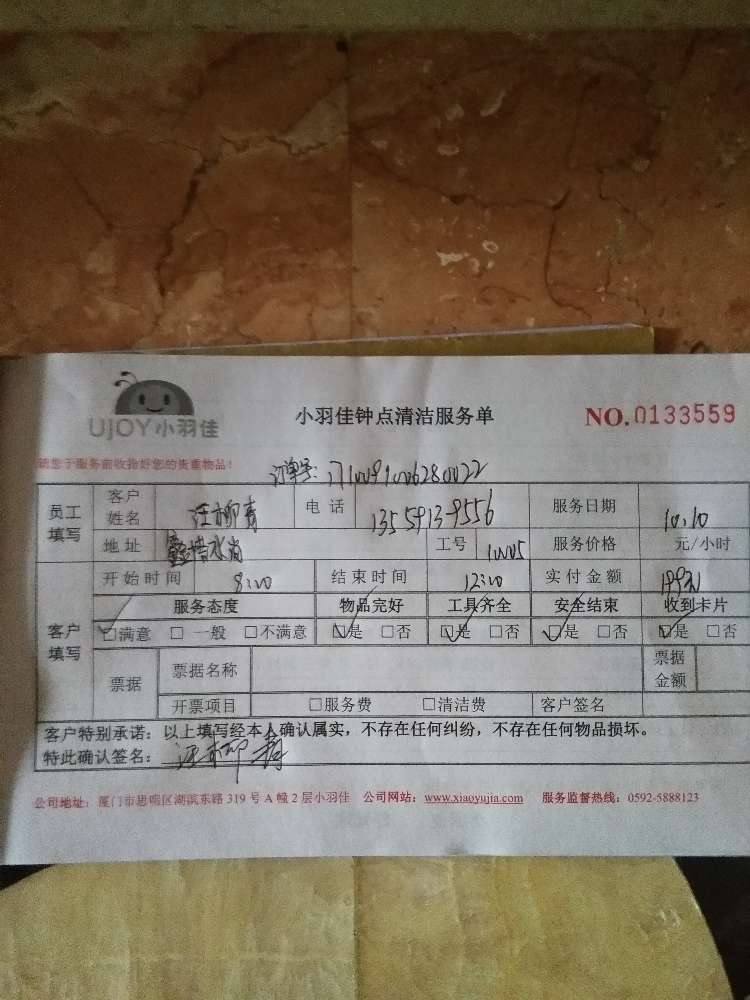 UJOY小羽佳
小羽佳钟点清洁服务单
NO.0133559
请您于服务前收拾好您的贵重物品！
订单号：
员工填写 客户姓名 汪柳青 电话 13559139556 服务日期 10.10
地址 水尚 工号 服务价格 元/小时
开始时间 8:00 结束时间 12:00 实付金额 199元
客户填写 服务态度 物品完好 工具齐全 安全结束 收到卡片
☑满意 □ 一般 □不满意 ☑是 □否 ☑是 □否 ☑是 □否 ☑是 □否
票据 票据名称 票据金额
开票项目 □服务费 □清洁费 客户签名
客户特别承诺：以上填写经本人确认属实，不存在任何纠纷，不存在任何物品损坏。
特此确认签名：汪柳青
公司地址：厦门市思明区湖滨东路 319 号 A 幢 2 层小羽佳 公司网站：www.xiaoyujia.com 服务监督热线：0592-5888123